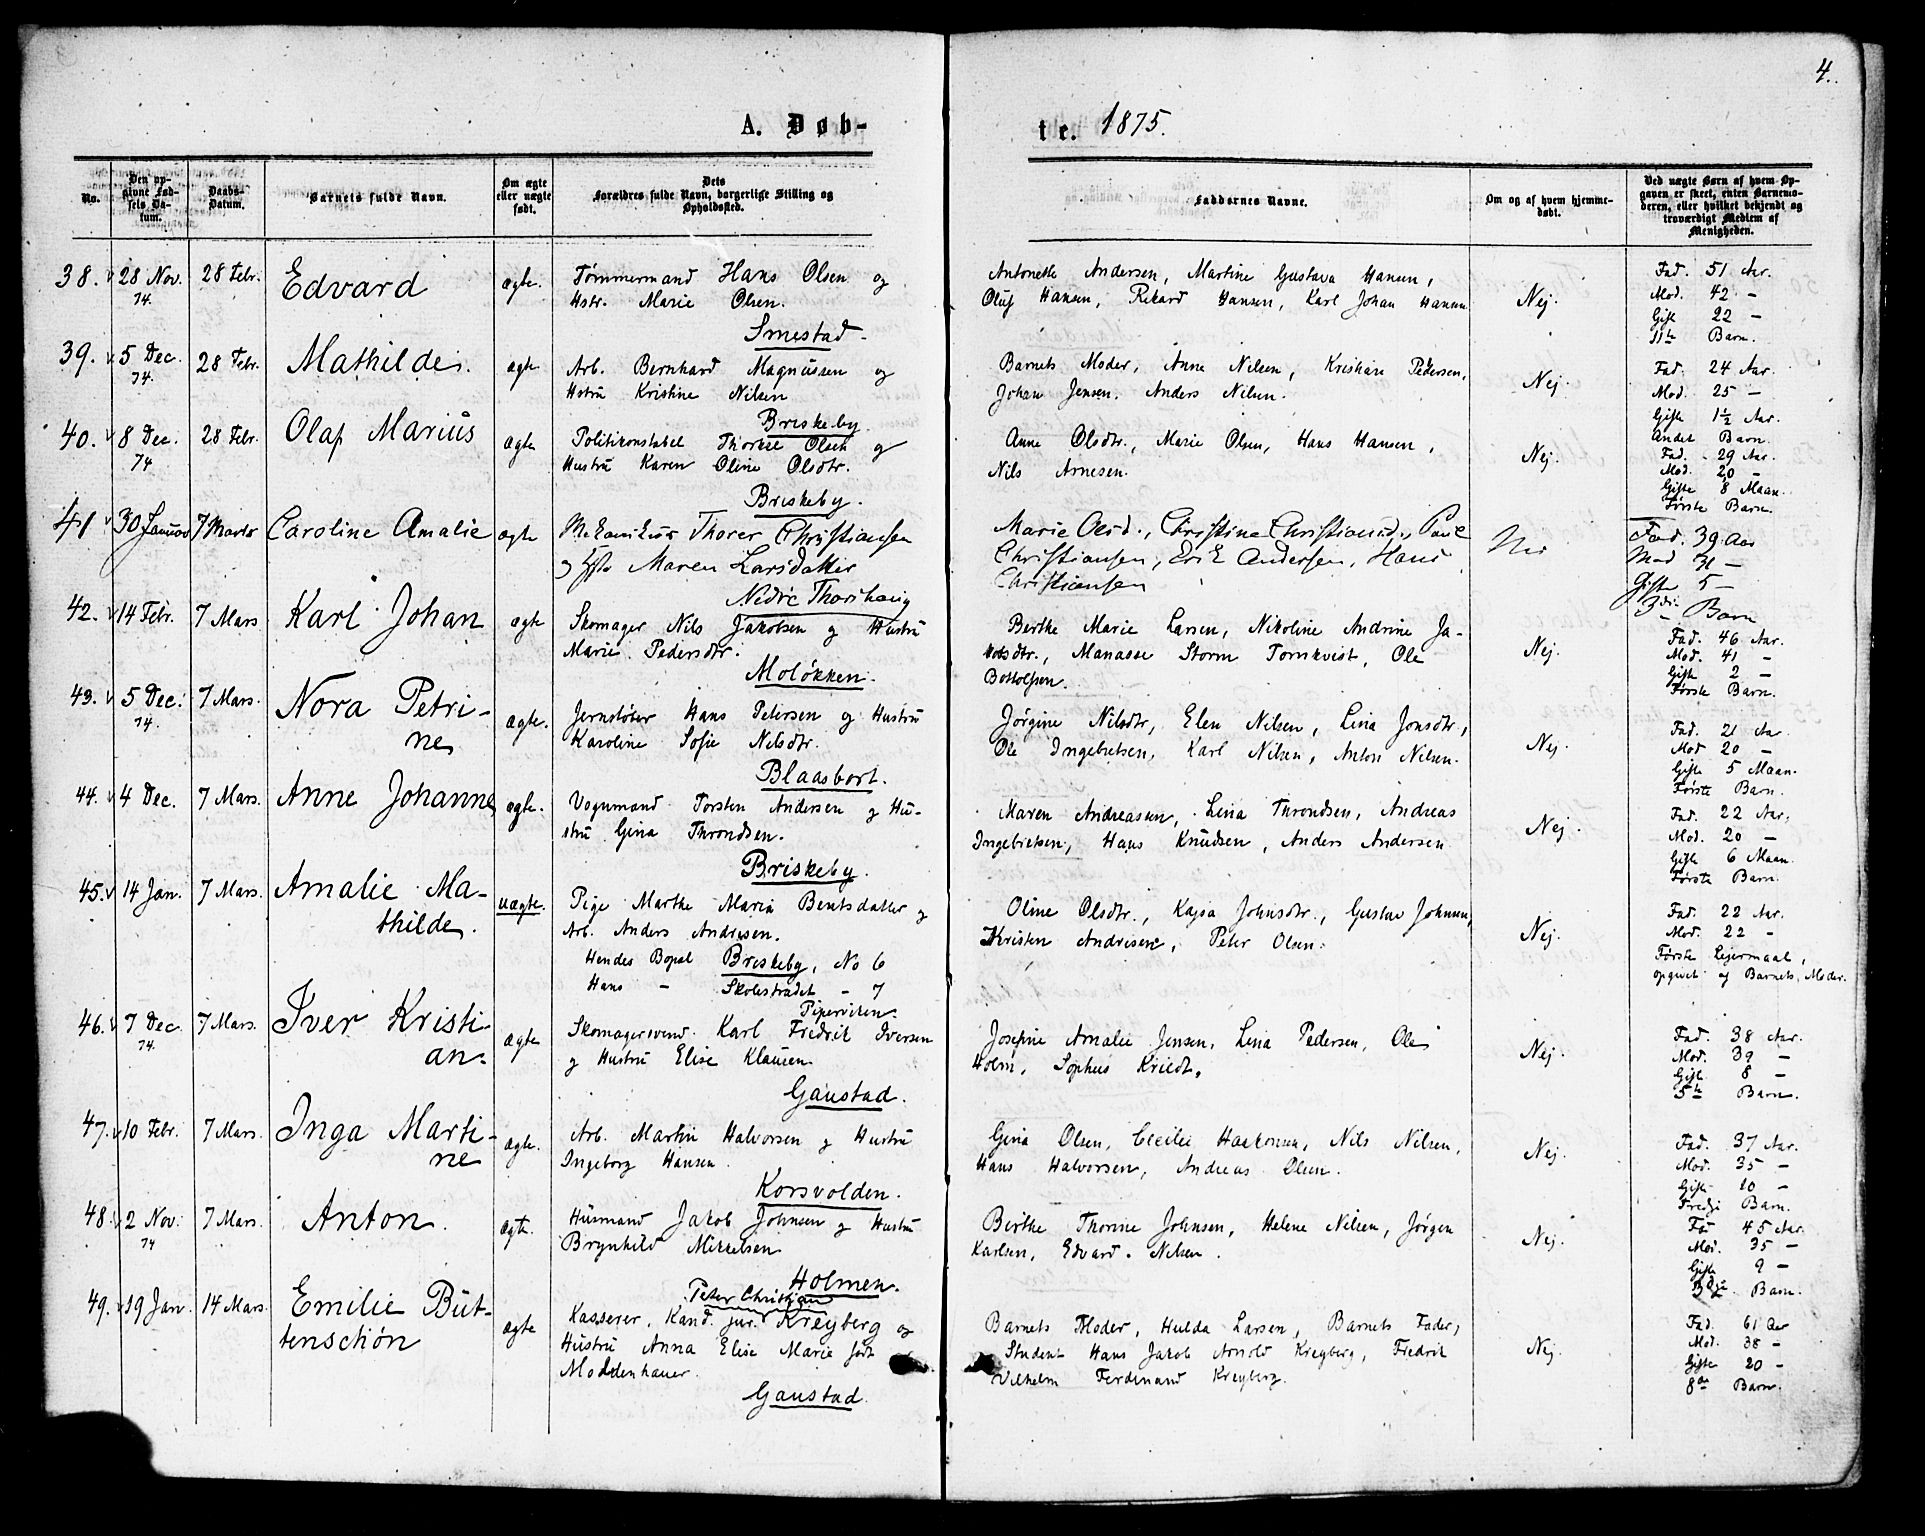 4.
A. Døb-
te. 1875.
No.
Den op-
givne Fød-
sels Da-
tum.
Daabs-
Datum.
Barnets fulde Navn.
Om ægte
eller uægte
født.
Dets
Forældres fulde Navn, borgerlige Stilling og
Opholdssted.
Faddernes Navne.
Om og af hvem hjemme-
døbt.
Ved uægte Børn af hvem Op-
gaven er skeet, enten Barnemo-
deren, eller hvilket bekjendt og
troværdigt Medlem af
Menigheden.
38. 28 Nov. 74. 28 Febr. Edvard ægte.
Tømmermand Hans Olsen og
Hstr. Marie Olsen.
Smestad.
Antonette Andersen, Martine Gustava Hansen,
Oluf Hansen, Rikard Hansen, Karl Johan Hansen
Nej.
Fad. 51 Aar.
Mod. 42 -
Gift 22 -
11te Barn.
39. 5 Dec. 74. 28 Febr. Mathilde. ægte
Arb. Bernhard Magnussen og
Hstru Kristine Nilsen
Briskeby.
Barnets Moder, Anne Nilsen, Kristiane Pedersen,
Johan Jensen, Anders Nilsen.
Nej.
Fad. 24 Aar.
Mod. 25 -
Gifte 1½ Aar.
Andet Barn.
40. 8 Dec. 74 28 Febr. Olaf Marius ægte
Politikonstabel Thorkel Olsen og
Hustru Karen Oline Olsdtr.
Briskeby.
Anne Olsdtr., Marie Olsen, Hans Hansen,
Nils Arnesen.
Nej.
Fad. 29 Aar.
Mod. 20 -
Gifte 8 Maan.
Første Barn.
41 30 Januar 7 Marts Caroline Amalie ægte
Mekanikus Thorer Christiansen
og Hst. Maren Larsdatter
Nedre Thorshaug
Marie Olsd., Christine Christiansd., Paul
Christiansen, Erik Andersen, Hans
Christiansen
Nei
Fad. 39 Aar
Mod 31 -
Gifte 5 -
3die Barn
42. 14 Febr. 7 Mars Karl Johan ægte
Skomager Nils Jakobsen og Hustru
Marie Pedersdtr.
Moløkken.
Berthe Marie Larsen, Nikoline Andrine Ja-
kobsdtr., Manasse Storm Tornkvist, Ole
Bottolfsen.
Nej.
Fad. 46 Aar.
Mod. 41 -
Gifte 2 -
Første Barn.
43. 5 Dec. 74. 7 Mars. Nora Petri-
ne ægte.
Jernstøber Hans Petersen og Hustru
Karoline Sofie Nilsdtr.
Blaasbort.
Jørgine Nilsdtr, Elen Nilsen, Lina Jonsdtr.,
Ole Ingebretsen, Karl Nilsen, Anton Nilsen.
Nej.
Fad. 21 Aar
Mod 20 -
Gifte 5 Maan.
Første Barn.
44. 4 Dec. 7 Mars. Anne Johanne ægte.
Vognmand Torsten Andersen og Hu-
stru Gina Throndsen.
Briskeby.
Maren Andreassen, Lina Throndsen, Andreas
Ingebretsen, Hans Knudsen, Anders Andersen
Nej.
Fad. 22 Aar.
Mod. 20 -
Gifte 6 Maan.
Første Barn.
45. 14 Jan. 7 Mars. Amalie Ma-
thilde. uægte.
Pige Marthe Maria Bentsdatter og
Arb. Anders Andresen.
Hendes Bopæl Briskeby, No 6
Hans - Skolestrædet - 7
Pipervichen.
Oline Olsdtr., Kajsa Johnsdtr., Gustav Johnsen,
Kristen Andrisen, Peter Olsen.
Nej.
Fad. 22 Aar.
Mod. 22 -
Første Lejermaal,
opgivet af Barnets Moder.
46. 7 Dec. 74. 7 Mars. Iver Kristi-
an. ægte
Skomagersvend Karl Fredrik Iversen
og Hustru Elise Klausen
Gaustad.
Josefine Amalie Jensen, Lina Pedersen, Ole
Holm, Sophus Kriedt.
Nej.
Fad. 38 Aar.
Mod. 39 -
Gift. 8 -
5te Barn.
47. 10 Febr. 7 Mars. Inga Marti-
ne ægte.
Arb. Martin Halvorsen og Hustru
Ingeborg Hansen.
Korsvolden.
Gina Olsen, Cecilie Haakonsen, Nils Nilsen,
Hans Halvorsen, Andreas Olsen.
Nej.
Fad. 37 Aar.
Mod. 35 -
Gifte 10 -
Tredje Barn.
48. 2 Nov. 74 7 Mars. Anton. ægte.
Husmand Jakob Johnsen og Hustru
Brynhild Mikkelsen
Holmen.
Birthe Thorine Johnsen, Helene Nilsen, Jørgen
Karlsen, Edvard Nilsen.
Nej.
Fad 45 Aar.
Mod. 35 -
Gifte 9 -
3die Barn.
49. 19 Jan. 14 Mars. Emilie But-
tenschøn ægte
Peter Christian
Kasserer, Kand. jur. Kreyberg og
Hustru Anna Elise Marie født
Moldenhauer.
Gaustad.
Barnets Moder, Hulda Larsen, Barnets Fader,
Student Hans Jakob Arnold Kreyberg, Fredrik
Vilhelm Ferdinand Kreyberg.
Nej.
Fad. 61 Aar
Mod. 38 -
Gifte 20 -
8de Barn.